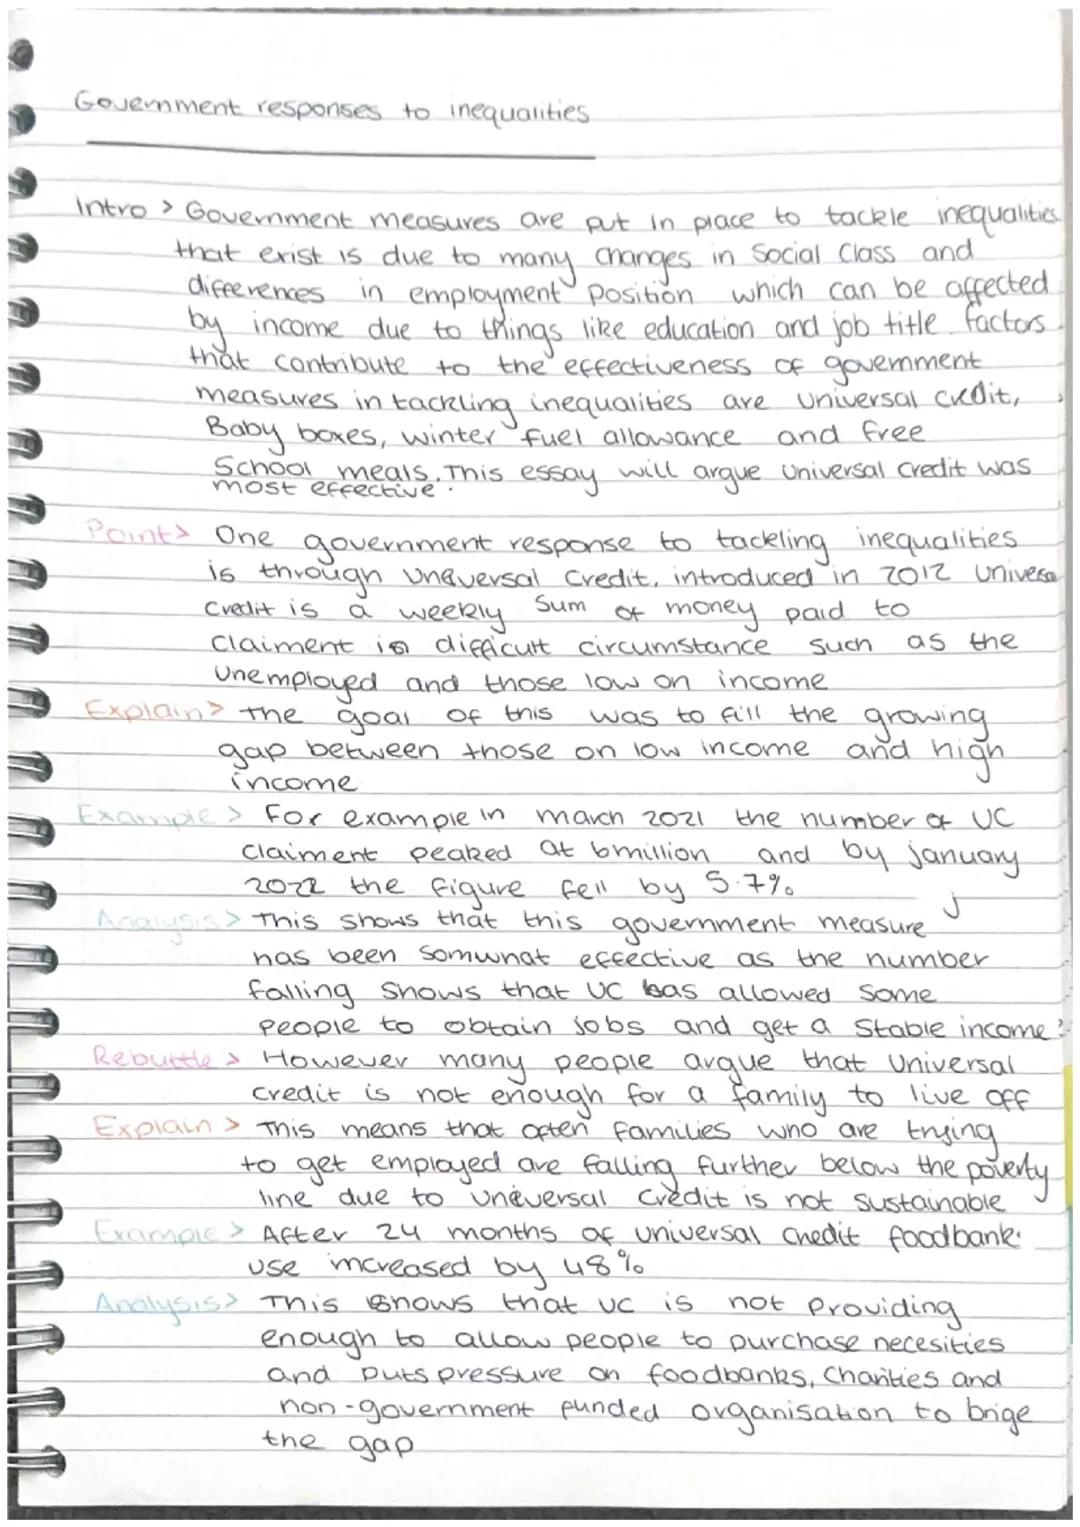 Government responses to inequalities
Intro > Government measures are put in place to tackle inequalities
that exist is due to many changes in Social Class and
differences in employment position which can be affected
by income due to things like education and job title. factors
that contribute to the effectiveness of government
measures in tackling inequalities are Universal credit,
Baby boxes, winter fuel allowance and free
School meals. This essay will argue universal credit was
most effective.
Point> One government response to tackling inequalities
is through Unaversal Credit, introduced in 2012 Universa
Credit is a weekly sum of money paid to
Claiment is difficult circumstance such as the
Unemployed and those low on income
Explain> The goal of this was to fill the growing
gap between those on low income and high
income
Example > For example in march 2021 the number of UC
Claiment peaked at 6million and by january
2022 the figure fell by 5.7%
Analysis> This shows that this government measure
has been Somwhat effective as the number
falling shows that UC has allowed some
people to obtain jobs and get a stable income
Rebuttle > However many people argue that Universal
Credit is not enough for a family to live off
Explain > This means that often families who are trying
to get employed are falling further below the poverty
line due to Uneversal Credit is not sustainable
Example > After 24 months of universal credit foodbank
use increased by 48%
Analysis> This shows that UC is not providing
enough to allow people to purchase necesities
and puts pressure on foodbanks, Charities and
non-government funded organisation to brige
the gap